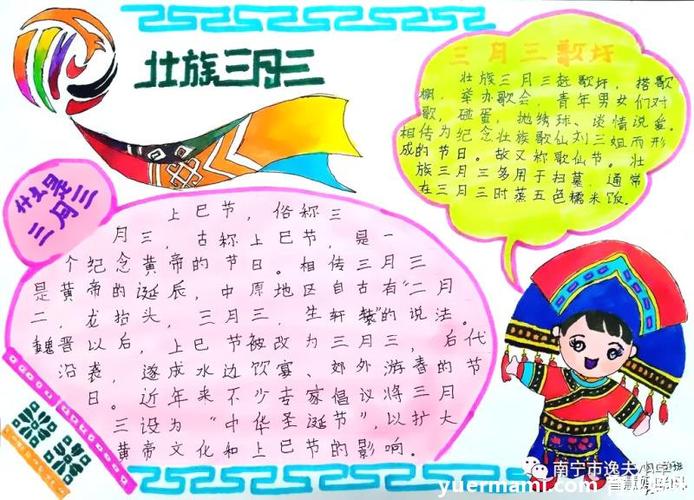 壮族三月三
三月三歌圩
壮族三月三赶歌圩，搭歌
棚，举办歌会，青年男女们对
歌、碰蛋、抛绣球、谈情说爱。
相传为纪念壮族歌仙刘三姐而形
成的节日。故又称歌仙节。壮
族三月三多用于扫墓，通常
在三月三时蒸五色糯米饭。
什么是
三月三
上巳节，俗称三
月三，古称上巳节，是一
个纪念黄帝的节日。相传三月三
是黄帝的诞辰，中原地区自古有“二月
二，龙抬头，三月三，生轩辕”的说法。
魏晋以后，上巳节被改为三月三，后代
沿袭，遂成水边饮宴、郊外游春的节
日。近年来不少专家倡议将三月
三设为“中华圣诞节”，以扩大
黄帝文化和上巳节的影响。
南宁市逸夫小学
yuermami.com